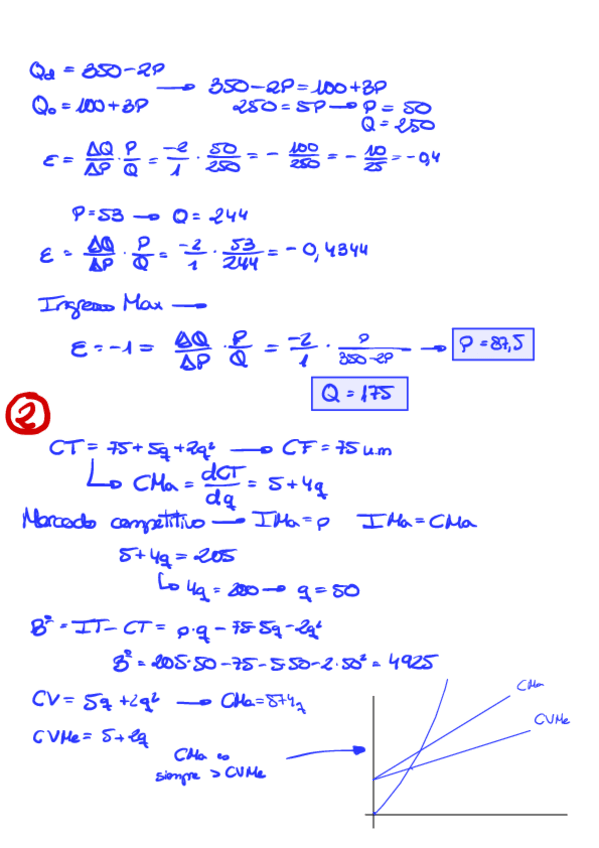 Qd = 350-2P
Qo = 100+3P → 350-2P = 100+3P
250 = 5P → P = 50
Q = 250
ε = ΔQ/ΔP · P/Q = -2/1 · 50/250 = - 100/250 = - 10/25 = -0,4
P = 53 → Q = 244
ε = ΔQ/ΔP · P/Q = -2/1 · 53/244 = - 0,4344
Ingreso Max →
ε = -1 = ΔQ/ΔP · P/Q = -2/1 · P/350-2P → P = 87,5
Q = 175
2
CT = 75+5q+2q² → CF = 75 u.m
↳ CMa = dCT/dq = 5+4q
Mercado competitivo → IMa = p IMa = CMa
5+4q = 205
↳ 4q = 200 → q = 50
Bº = IT - CT = p·q - 75-5q-2q²
Bº = 205·50-75-5·50-2·50² = 4925
CV = 5q+2q² → CMa = 5+4q
CVMe = 5+2q
CMa es
siempre > CVMe
CMa
CVMe